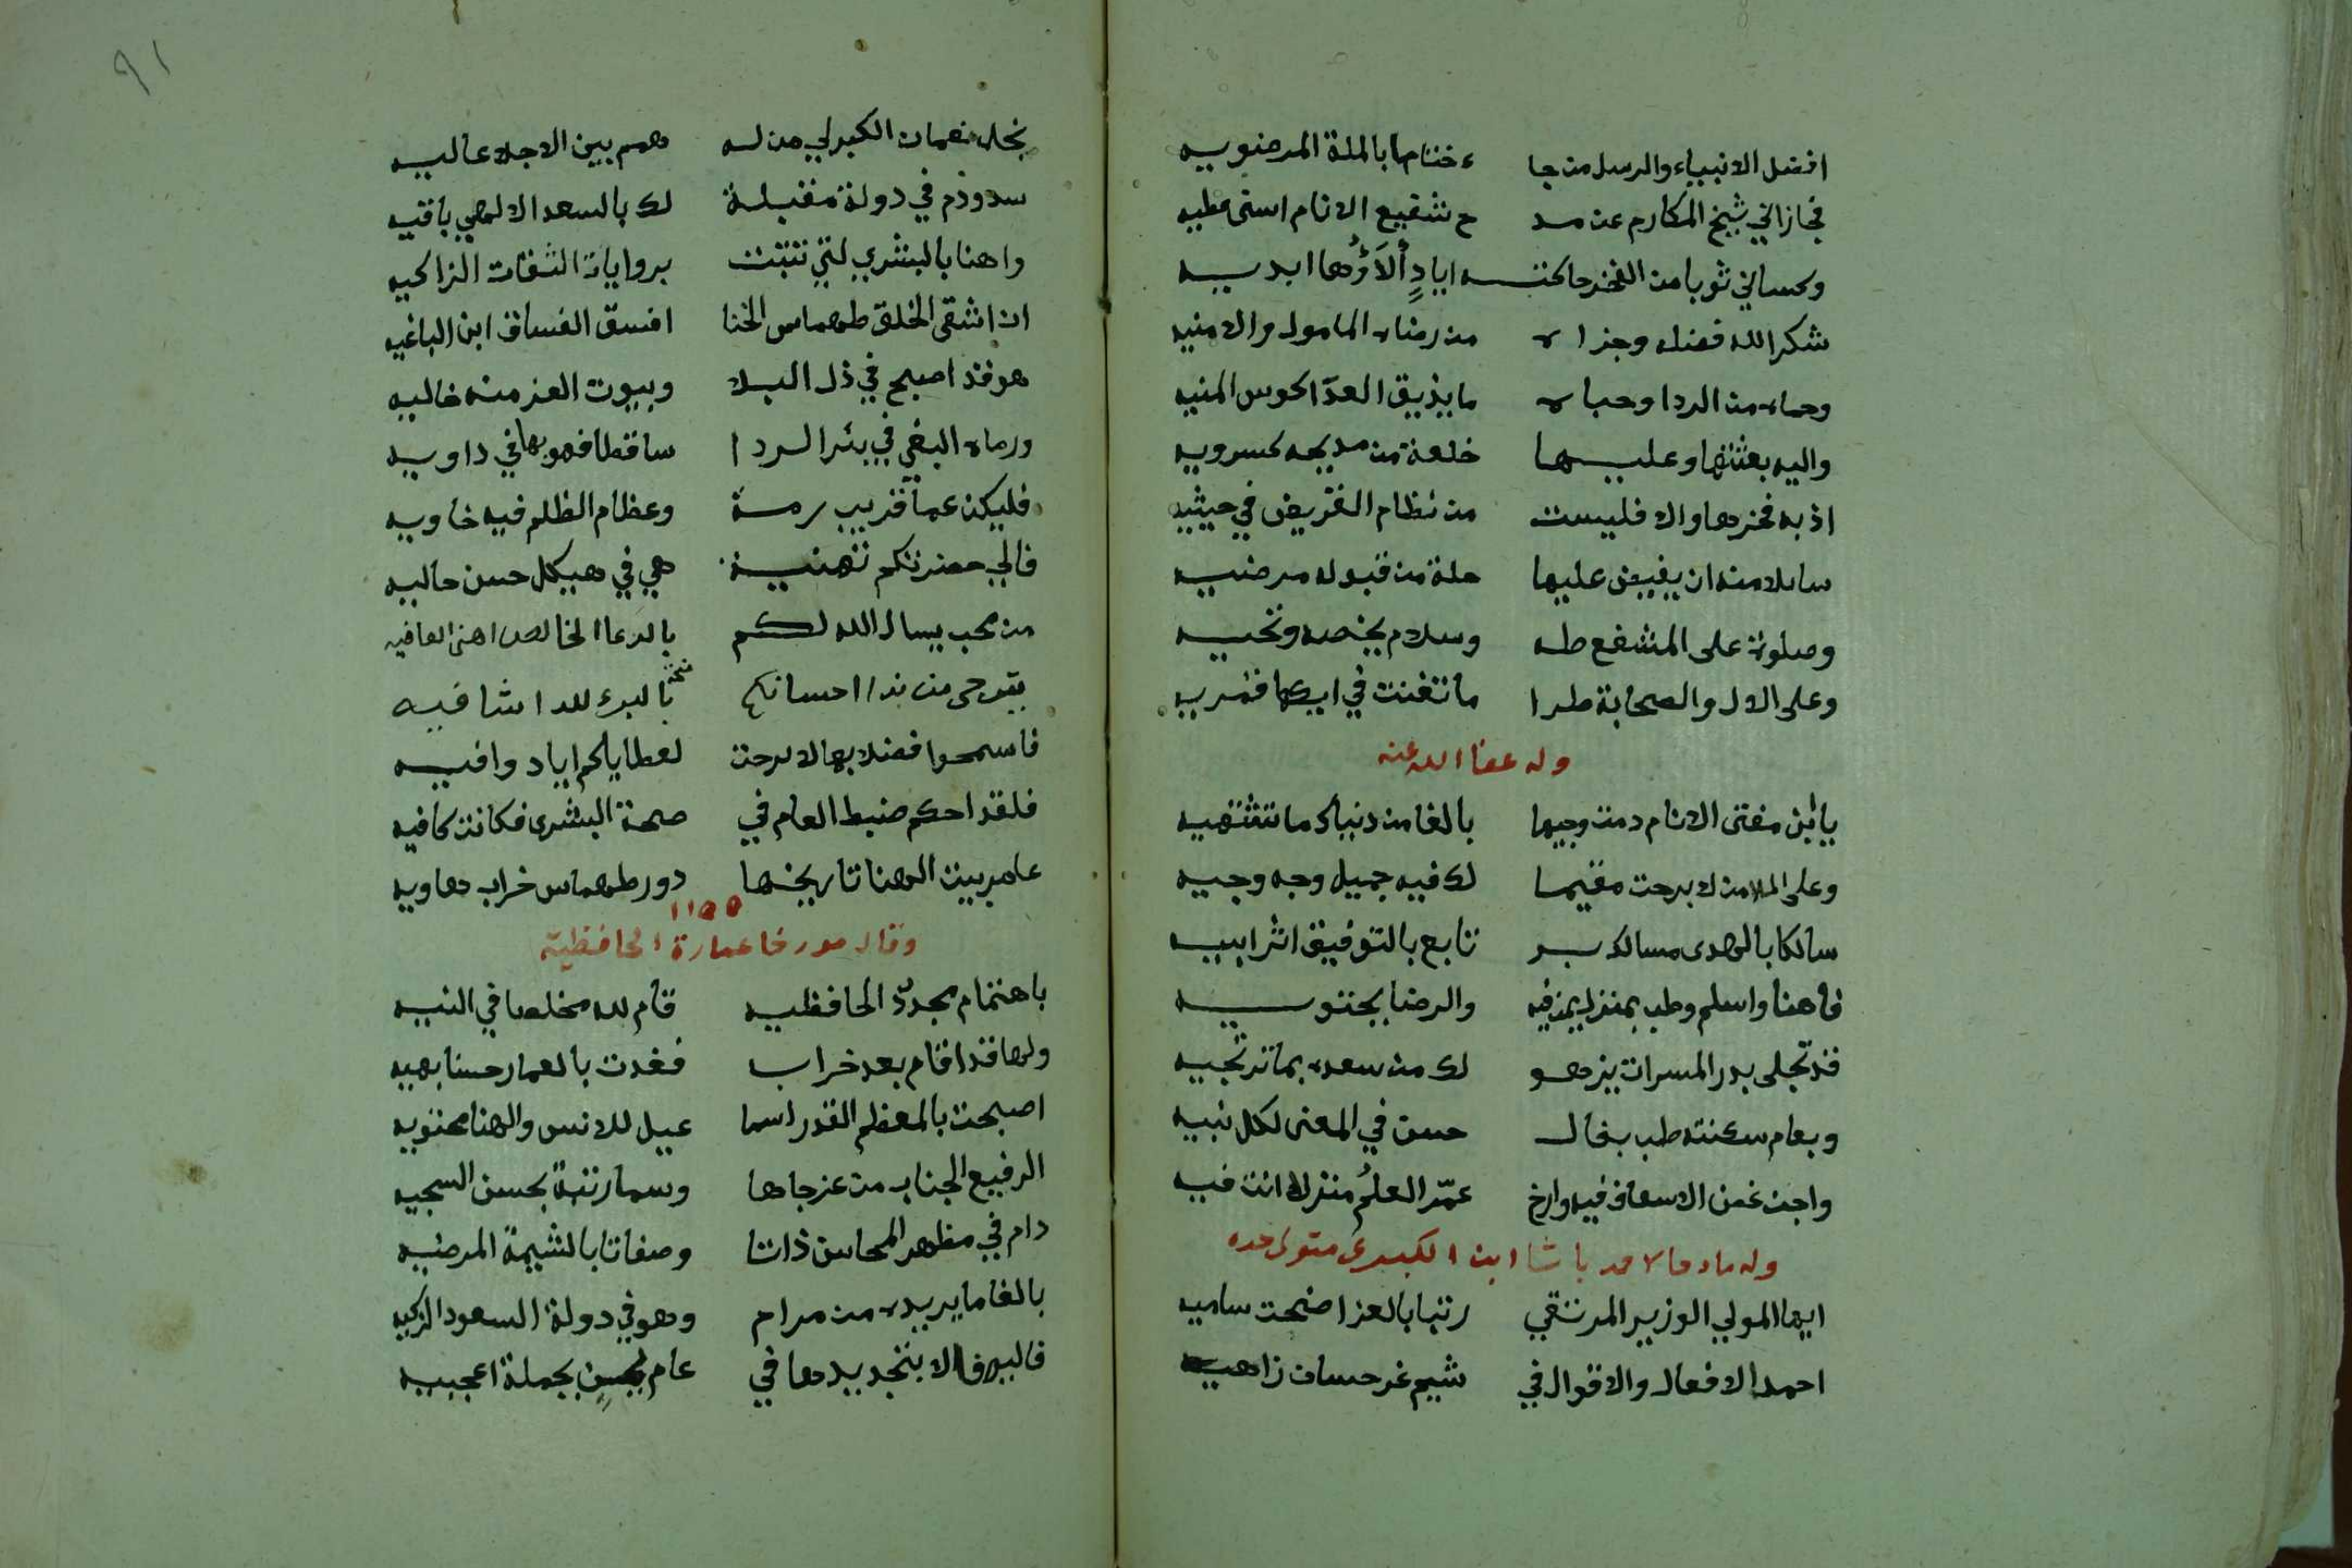 افضل الانبياء والرسل من جا ء ختاما بالملة المرضويه
فجازاني شيخ المكارم عن مد ح شفيع الانام اسنى عطيه
وكساني ثوبا من الفخر حاكته ايادٍ ألاَؤُها ابديه
شكر الله فضله وجزاه من رضاه المامول والامنيه
وحماه من الردا وحباه ما يذيق العدا كوس المنيه
واليه بعثتها وعليها خلعة من مديحه كسرويه
اذ به فخرها والا فليست من نظام القريض في حيثيه
سايلا منه ان يفيض عليها حلة من قبوله مرضيه
وصلوة على المشفع طه وسلام يخصه وتحيه
وعلى الال والصحابة طرا ما تغنت في ايكها قمريه
وله عفا الله عنه
يا ابن مفتى الانام دمت وجيها بالغا من دنياك ما تشتهيه
وعلى الملا من لا برحت مقيما لك فيه جميل وجه وجيه
سالكا بالهدى مسالك بر تابع بالتوفيق اثر ابيه
فاهنا واسلم وطب بمنزل يمن فيه والرضا يحتويه
قد تجلى بدر المسرات يزهو لك من سعده بما ترتجيه
وبعام سكنته طب بفال حسن في المعنى لكل نبيه
واجن غصن الاسعاف فيه وارخ عمّر العلمُ منزلا انت فيه
وله مادحا لاحمد باشا ابن الكبرلى متولى جده
ايها المولي الوزير المرتقي رتبا بالعز اضحت ساميه
احمد الافعال والاقوال في شيم غر حسان زاهيه
٩١
نجل نعمان الكبرلي من له همم بين الاجلا عاليه
سد ودم في دولة مقبلة لك بالسعد الالهي باقيه
واهنا بالبشري لتي تثبت بروايات الثقات الزاكيه
ان اشقى الخلق طهماس الخنا افسق الفساق ابن الباغيه
هو قد اصبح في ذل البلا وبيوت العز منه خاليه
ورماه البغي في بئر الردا ساقطا فهو بها في داويه
فليكن عما قريب رمة وعظام الظلم فيه خاويه
فالي حضرتكم تهنية هي في هيكل حسن حاليه
من محب يسال الله لكم بالدعا الخالص اهنى العافيه
يترجى من ندا احسانكم بالبرء للدا شافيه
فاسمحوا فضلا بها لا برحت لعطاياكم اياد وافيه
فلقد احكم ضبط العام في صحة البشرى فكانت كافيه
عامر بيت الهنا تاريخها دور طهماس خراب هاويه
١١٥٥
وقال مورخا عمارة الحافظية
باهتمام مجددُ الحافظيه قام لله مخلصا في النيه
ولها قد اقام بعد خراب فغدت بالعمار حسنا بهيه
اصبحت بالمعظم القدر اسما عيل للانس والهنا محتويه
الرفيع الجناب من عز جاها وسما رتبة بحسن السجيه
دام في مظهر المحاسن ذاتا وصفاتا بالشيمة المرضيه
بالغا ما يريده من مرام وهو في دولة السعود الزكيه
فاليها فالا بتجديدها في عام يمن بجملة اعجبيه